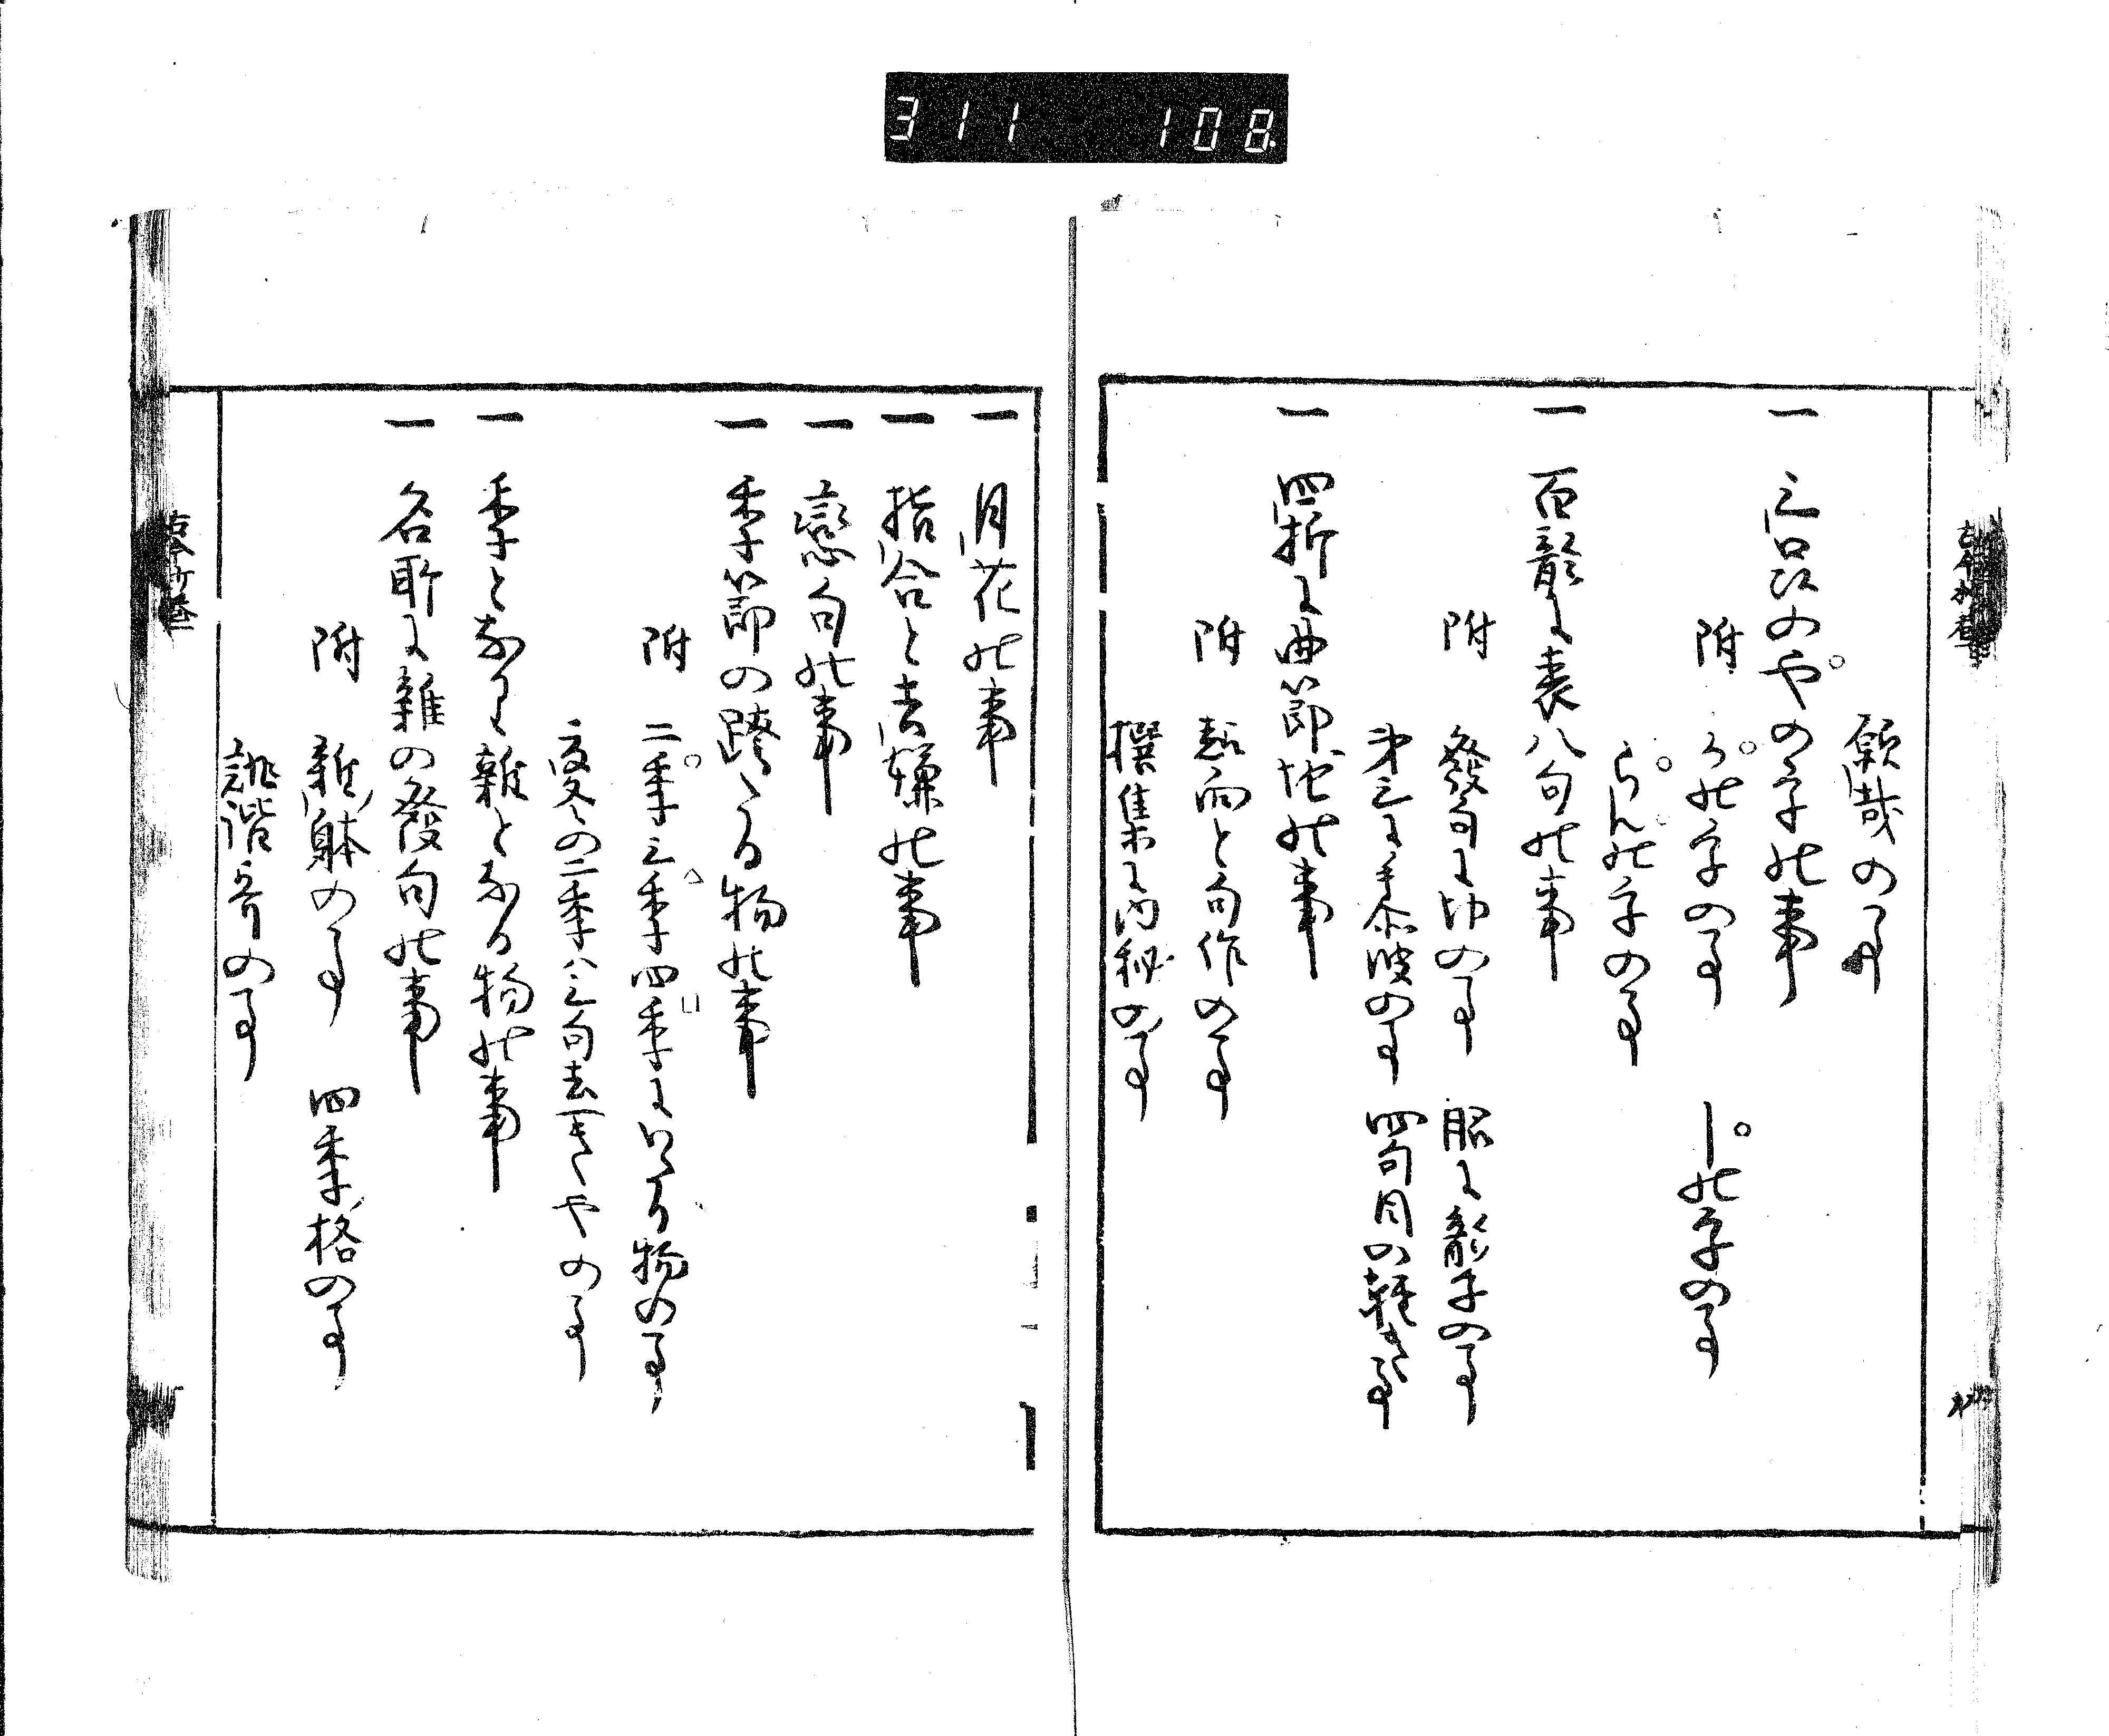 311 108
願哉の事
一 三品次のやの字の事
附 かの字の事 しの字の事
らんの字の事
一 百韻に表八句の事
附 發句に切の事 脇に韻字の事
第三に手尓波の事 四句目の軽き事
一 四折に曲節地の事
附 趣向と句作の事
撰集に内秘の事
一 月花の事
一 指合と去嫌の事
一 戀句の事
一 季節の蹺る物の事
附 二季三季四季にいる物の事
変の二季は三句去べきやの事
一 季となり雜となる物の事
一 名所に雜の發句の事
附 雜躰の事 四季格の事
誹諧哥の事